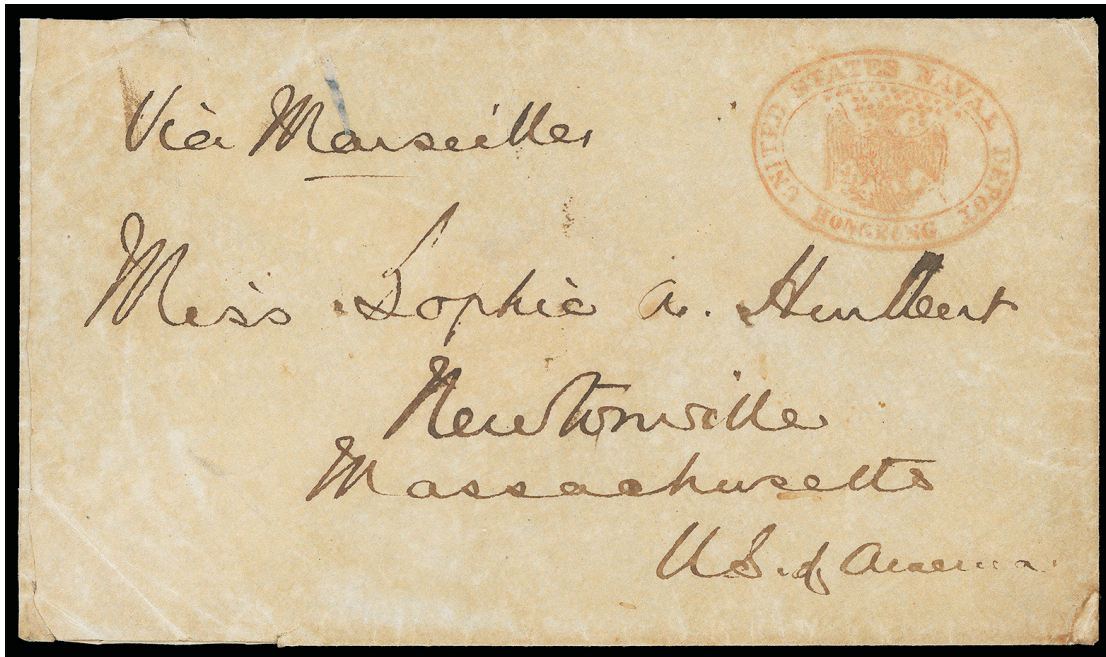 Via Marseilles
UNITED STATES NAVAL DEPOT
HONGKONG
Miss Sophie A. Hurlbert
Newtonville
Massachusetts
U.S. of America